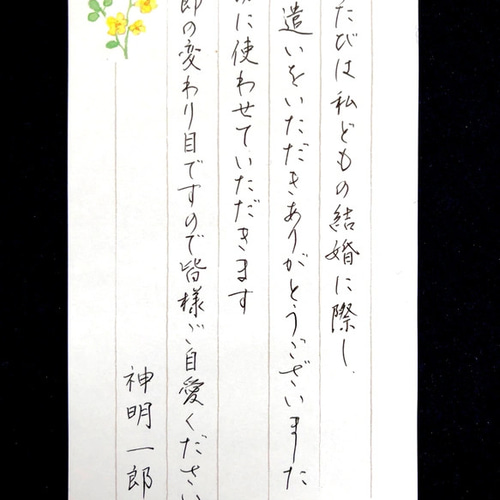 たびは私どもの結婚に際し
遣いをいただきありがとうございました
に使わせていただきます
節の変わり目ですので皆様ご自愛ください
神明一郎